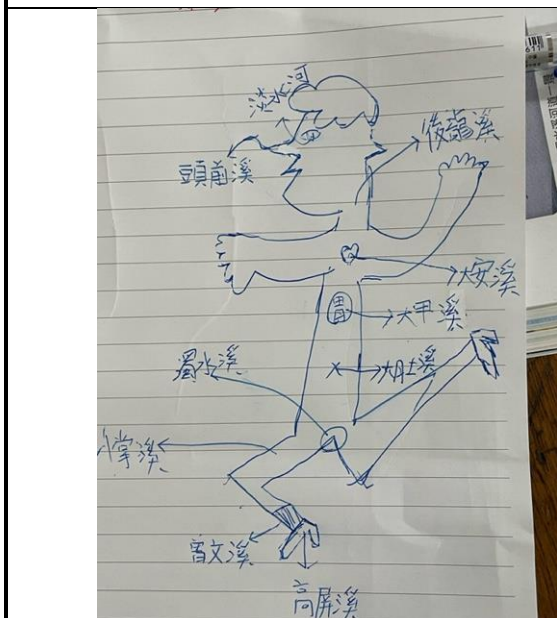 淡水河
後龍溪
頭前溪
大安溪
胃
大甲溪
大肚溪
濁水溪
八掌溪
曾文溪
高屏溪